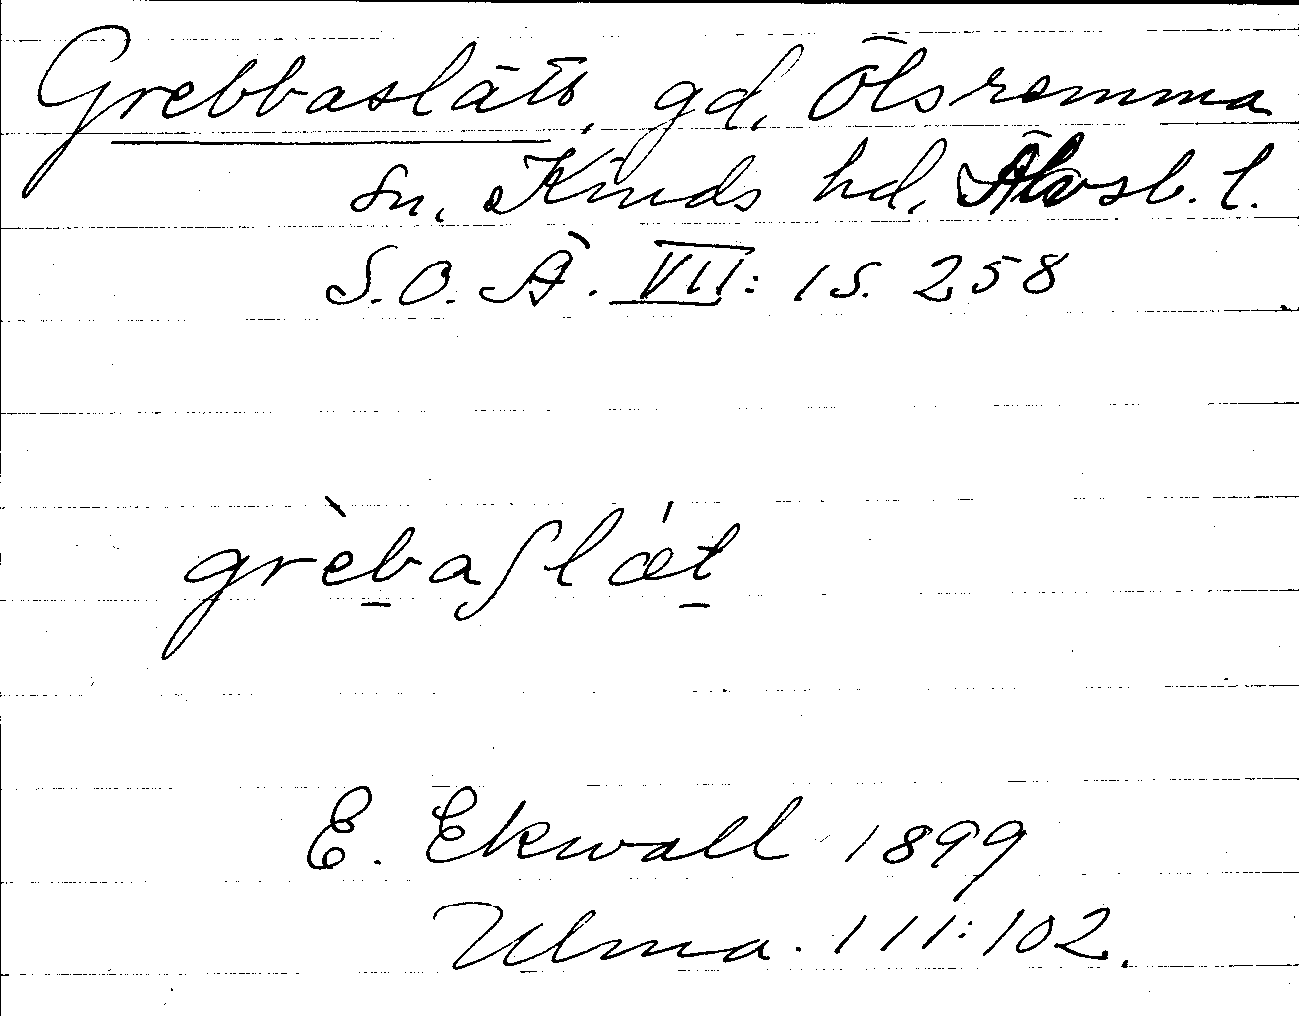 Grebbaslätt, gd, Ölsremma
sn, Kinds hd, Älvsb. l.
S.O.Ä. VII:1 S. 258
grèb̲aſlǽt̲
E. Ekwall 1899
Ulma. 111:102.